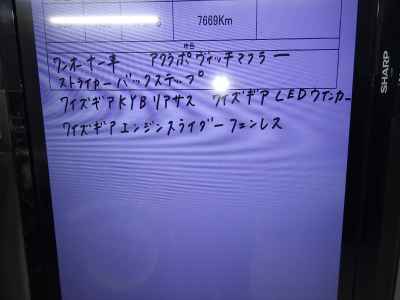 7669Km
ワンオーナー車 アクラポヴィッチマフラー
ストライカーバックステップ
ワイズギアKYBリアサス ワイズギアLEDウインカー
ワイズギアエンジンスライダーフェンレス
SHARP